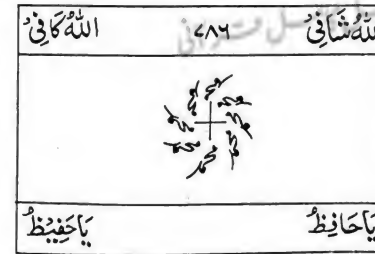 اللهُ شَافِیُ ۷۸۶ اللهُ کَافِیُ
محمد محمد محمد محمد محمد محمد محمد محمد
یَاحَافِظُ یَاحَفِیْظُ